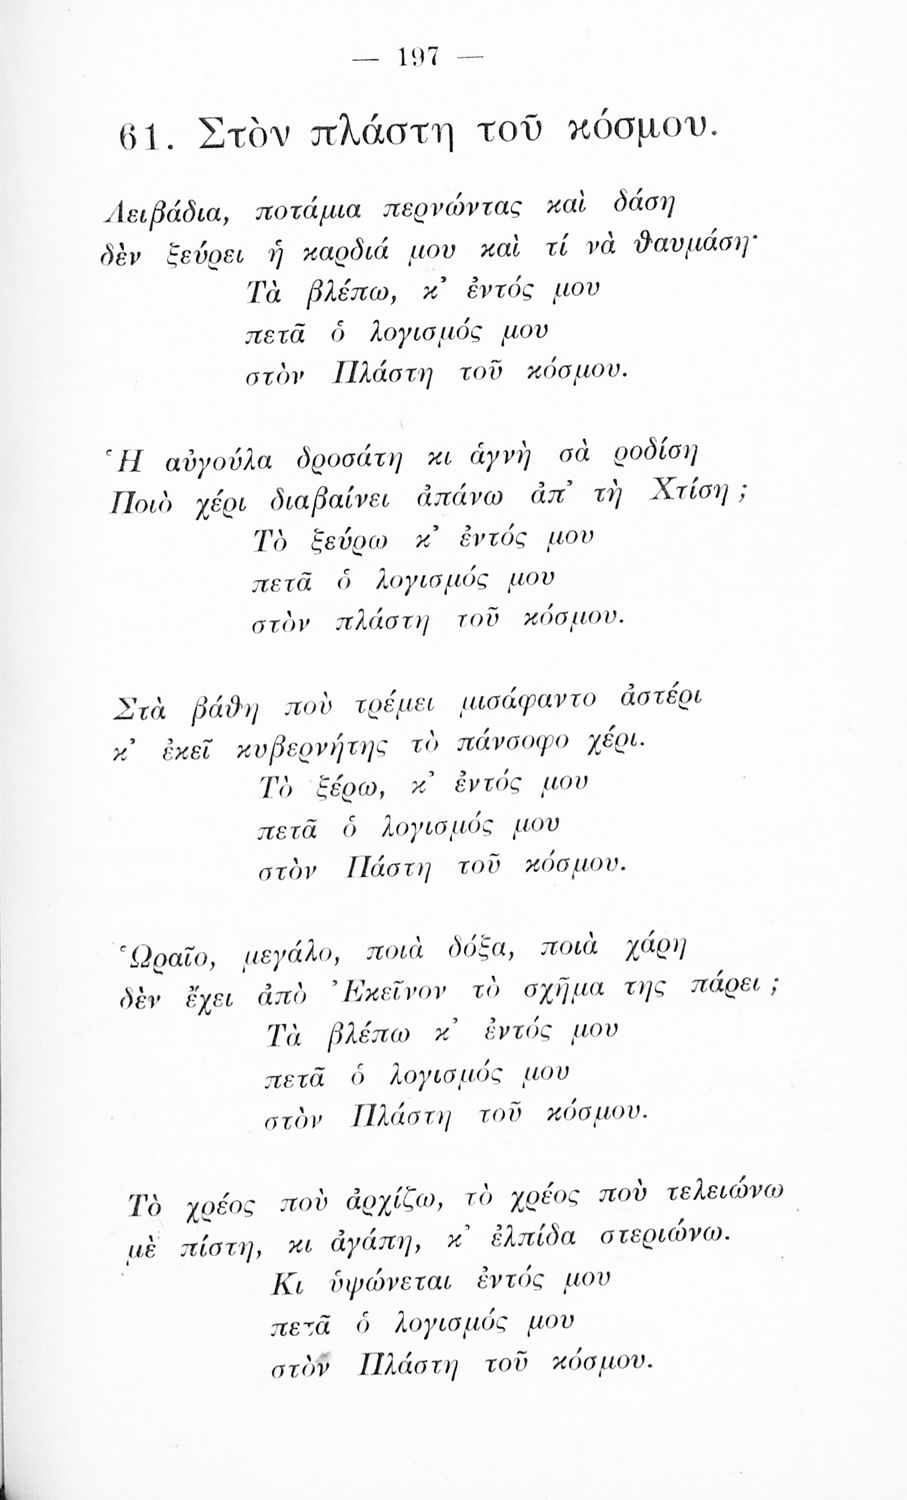 — 197 —
61. Στὸν πλάστη τοῦ κόσμου.
Λειβάδια, ποτάμια περνώντας καὶ δάση
δὲν ξεύρει ἡ καρδιά μου καὶ τί νὰ θαυμάση·
Τὰ βλέπω, κ' ἐντός μου
πετᾶ ὁ λογισμός μου
στὸν Πλάστη τοῦ κόσμου.
Ἡ αὐγούλα δροσάτη κι ἁγνὴ σὰ ροδίση
Ποιὸ χέρι διαβαίνει ἀπάνω ἀπ' τὴ Χτίση ;
Τὸ ξεύρω κ' ἐντός μου
πετᾶ ὁ λογισμός μου
στὸν πλάστη τοῦ κόσμου.
Στὰ βάθη ποὺ τρέμει μισάφαντο ἀστέρι
κ' ἐκεῖ κυβερνήτης τὸ πάνσοφο χέρι.
Τὸ ξέρω, κ' ἐντός μου
πετᾶ ὁ λογισμός μου
στὸν Πάστη τοῦ κόσμου.
Ὡραῖο, μεγάλο, ποιὰ δόξα, ποιὰ χάρη
δὲν ἔχει ἀπὸ Ἐκεῖνον τὸ σχῆμα της πάρει ;
Τὰ βλέπω κ' ἐντός μου
πετᾶ ὁ λογισμός μου
στὸν Πλάστη τοῦ κόσμου.
Τὸ χρέος ποὺ ἀρχίζω, τὸ χρέος ποὺ τελειώνω
μὲ πίστη, κι ἀγάπη, κ' ἐλπίδα στεριώνω.
Κι ὑψώνεται ἐντός μου
πετᾶ ὁ λογισμός μου
στὸν Πλάστη τοῦ κόσμου.